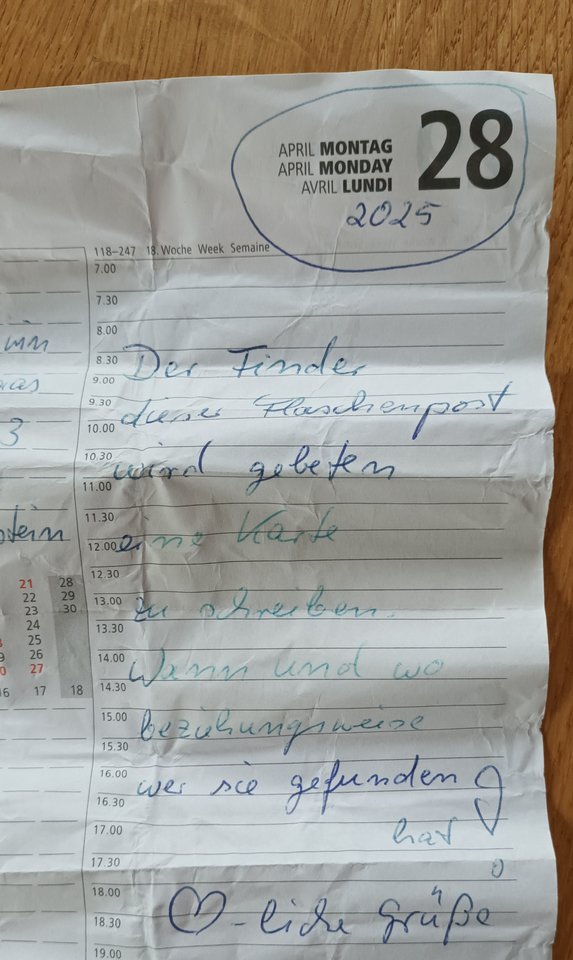 APRIL MONTAG 28
APRIL MONDAY
AVRIL LUNDI
2025
118–247 18. Woche Week Semaine
7.00
7.30
8.00
8.30 Der Finder
9.00
9.30 dieser Flaschenpost
10.00
10.30 wird gebeten
11.00
11.30
12.00 eine Karte
12.30
13.00 zu schreiben.
13.30
14.00 Wann und wo
14.30
15.00 beziehungsweise
15.30
16.00 wer sie gefunden
16.30
17.00 hat !
17.30
18.00
18.30 ♡-liche Grüße
19.00
3
stein
21 28
22 29
23 30
24
25
26
27
17 18